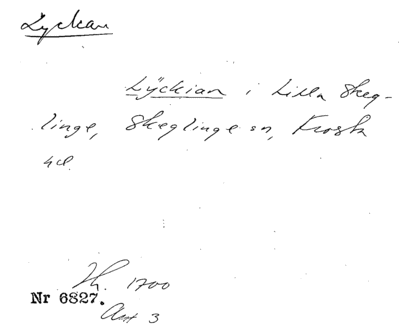 Lyckan
Lÿckian i Lilla Skeg-
linge, Skeglinge sn, Frosta
hd
1700
Nr 6827.
3